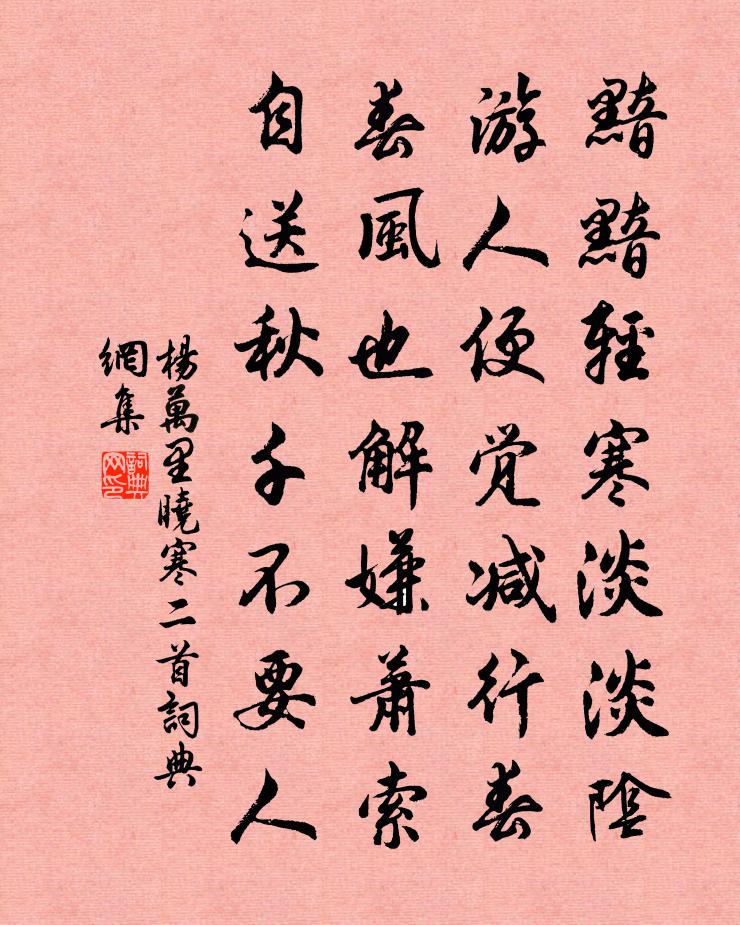 黯黯輕寒淡淡陰
游人便觉减行春
春風也解嫌蕭索
自送秋千不要人
楊萬里曉寒二首詞典
網集
詞典網印